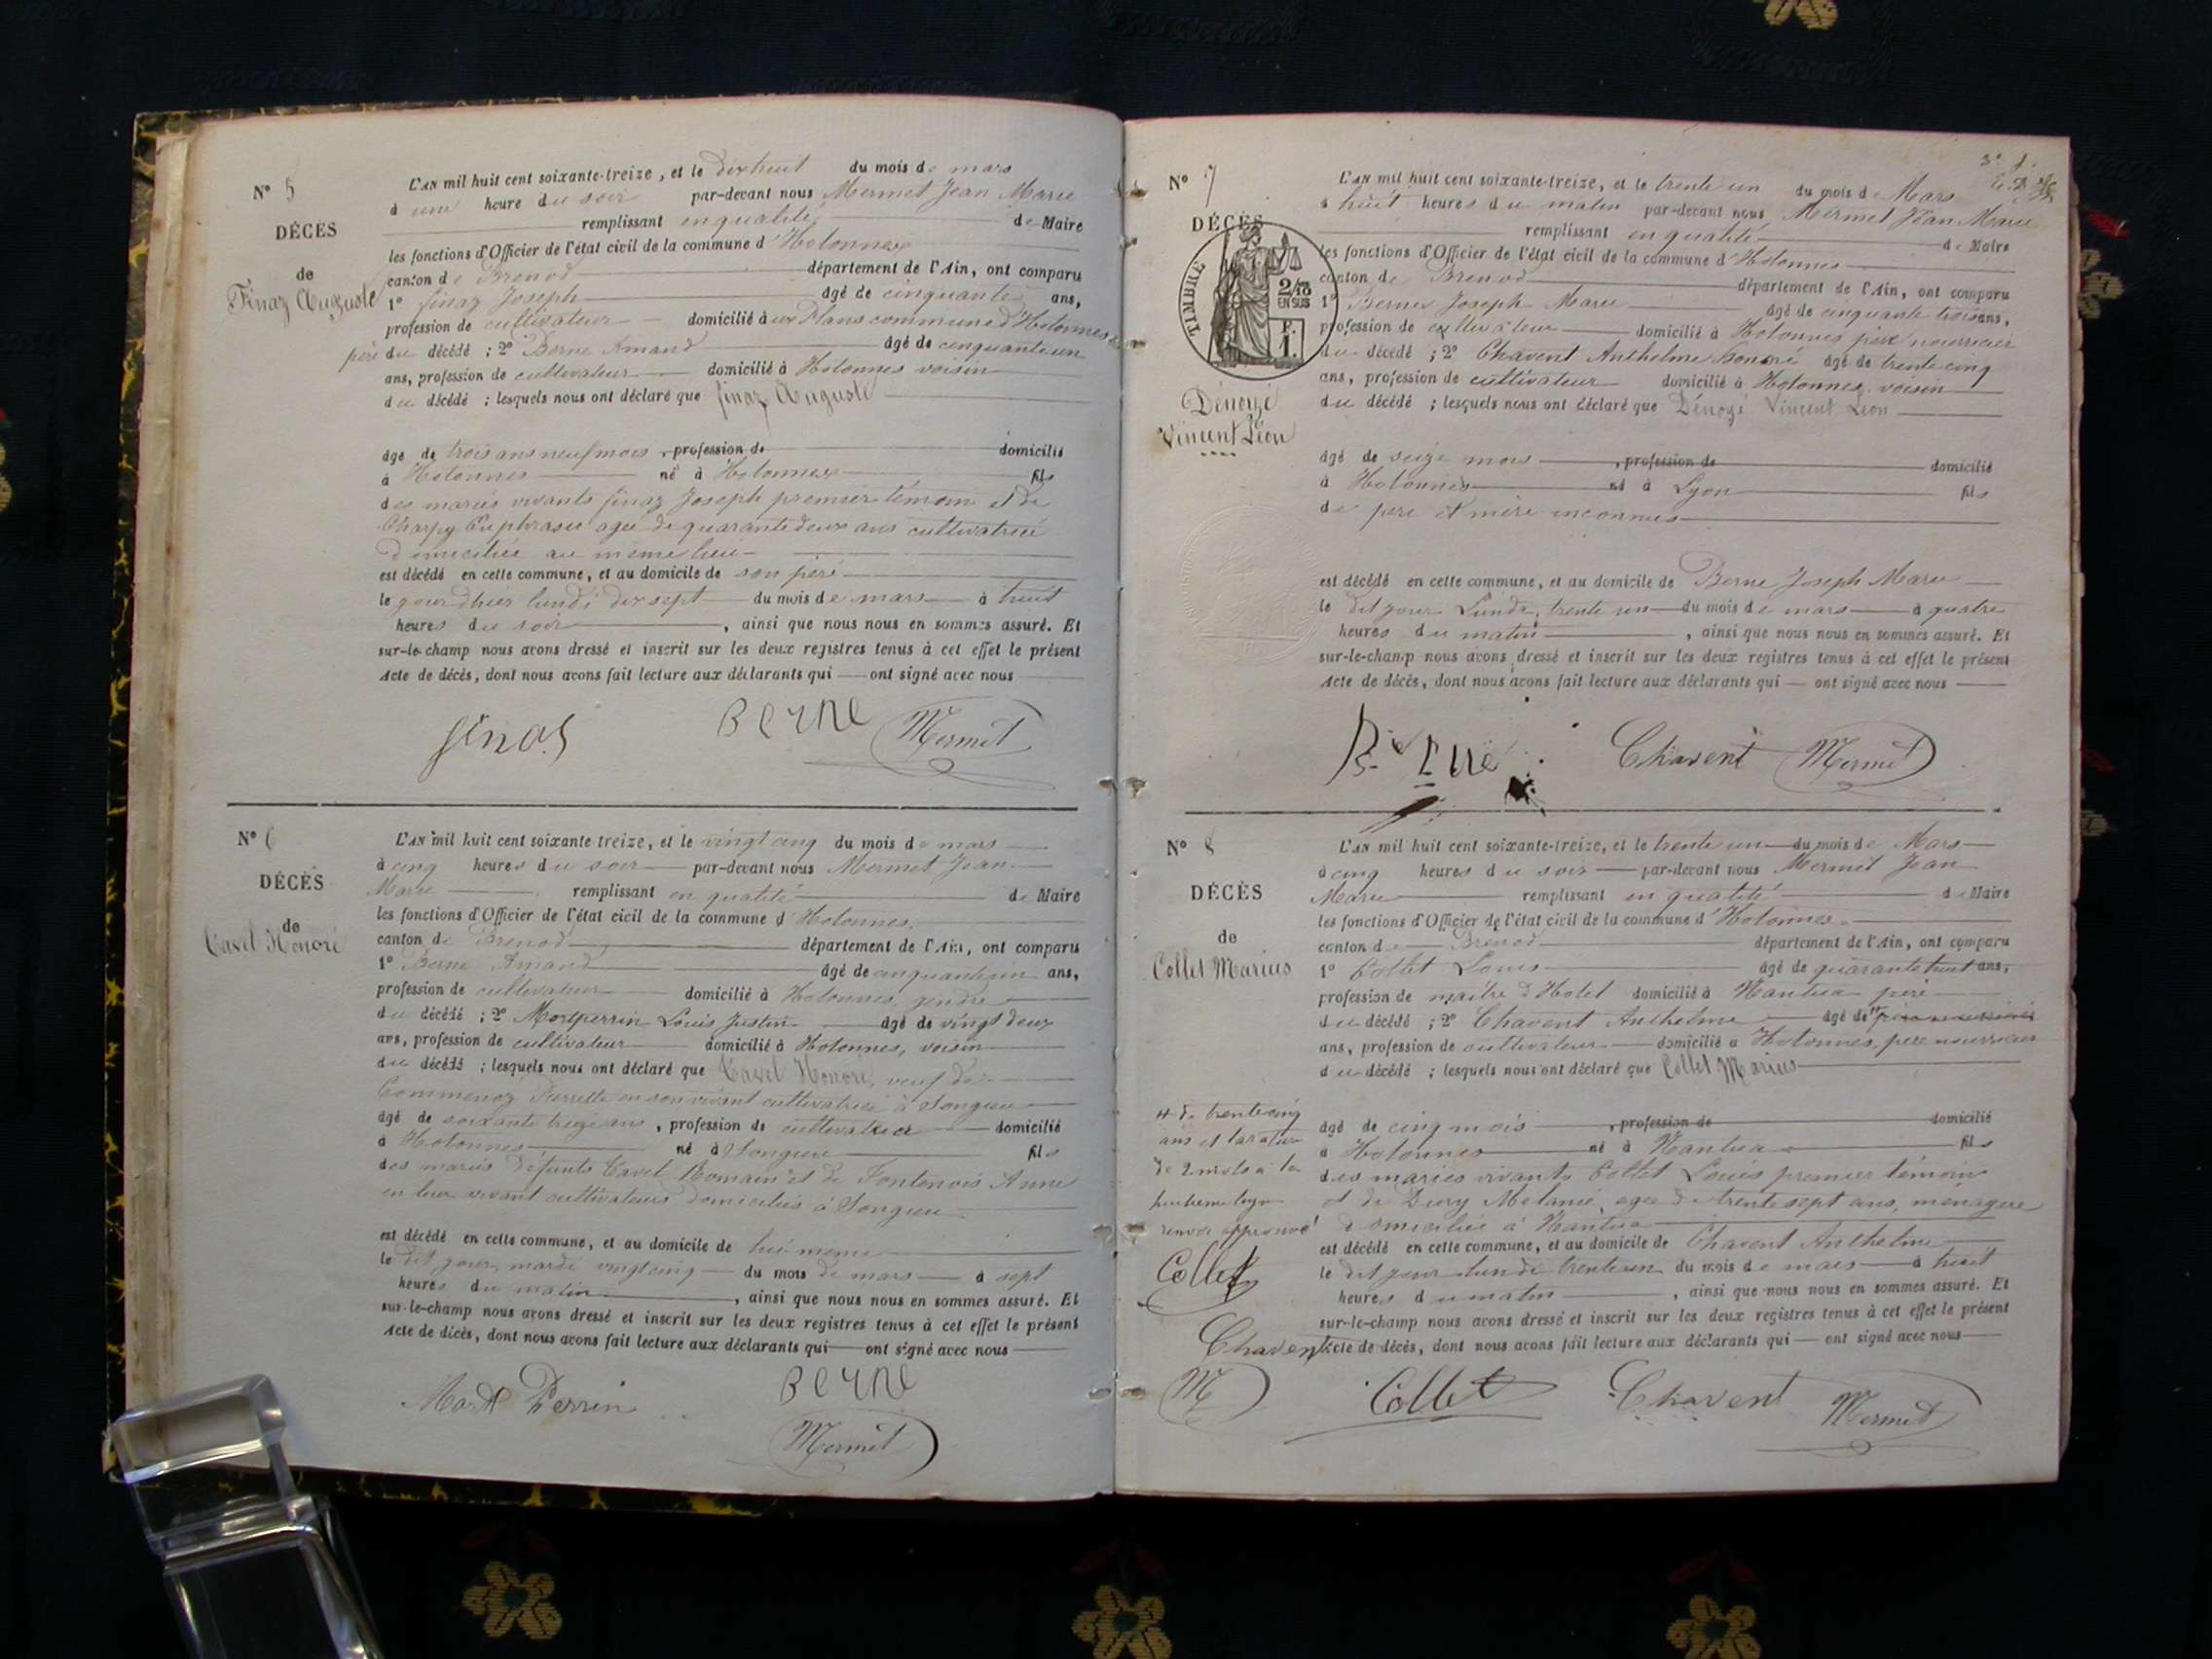 N° 5
DÉCÈS
de
Finaz Auguste
L'AN mil huit cent soixante-treize, et le dix huit du mois de mars
à une heure du soir par-devant nous Mermet Jean Marie
remplissant en qualité de Maire
les fonctions d'Officier de l'état civil de la commune d'Hotonnes
canton de Brenod département de l'Ain, ont comparu
1° finaz Joseph âgé de cinquante ans,
profession de cultivateur domicilié à aux Plans commune d'Hotonnes
père du décédé ; 2° Berne Amand âgé de cinquante un
ans, profession de cultivateur domicilié à Hotonnes voisin
du décédé ; lesquels nous ont déclaré que finaz Auguste
âgé de trois ans neuf mois , profession de domicilié
à Hotonnes né à Hotonnes fils
des mariés vivants finaz Joseph premier témoin et de
Charpy Euphrasie agée de quarante deux ans cultivatrice
domiciliée au même lieu
est décédé en cette commune, et au domicile de son père
le jour d'hier lundi dix sept du mois de mars à huit
heures du soir , ainsi que nous nous en sommes assuré. Et
sur-le-champ nous avons dressé et inscrit sur les deux registres tenus à cet effet le présent
Acte de décès, dont nous avons fait lecture aux déclarants qui ont signé avec nous
finas BERNE Mermet
N° 6
DÉCÈS
de
Cavel Honoré
L'AN mil huit cent soixante treize, et le vingt cinq du mois de mars
à cinq heures du soir par-devant nous Mermet Jean
Marie remplissant en qualité de Maire
les fonctions d'Officier de l'état civil de la commune d'Hotonnes
canton de Brenod département de l'Ain, ont comparu
1° Berne Amand âgé de cinquante un ans,
profession de cultivateur domicilié à Hotonnes, gendre
du décédé ; 2° Montperrin Louis Justin âgé de vingt deux
ans, profession de cultivateur domicilié à Hotonnes, voisin
du décédé ; lesquels nous ont déclaré que Cavel Honoré, veuf de
Pierrette en son vivant cultivatrice à Songieu
âgé de soixante treize ans , profession de cultivateur domicilié
à Hotonnes né à Songieu fils
des mariés défunts Cavel Romain et de Fontenois Anne
en leur vivant cultivateurs domiciliés à Songieu
est décédé en cette commune, et au domicile de lui même
le dit jour mardi vingt cinq du mois de mars à sept
heures du matin , ainsi que nous nous en sommes assuré. Et
sur-le-champ nous avons dressé et inscrit sur les deux registres tenus à cet effet le présent
Acte de décès, dont nous avons fait lecture aux déclarants qui ont signé avec nous
Mont Perrin BERNE
Mermet
N° 7
DÉCÈS
TIMBRE
2/10
EN SUS
F.
1.
Dénoyé
Vincent Léon
L'AN mil huit cent soixante-treize, et le trente un du mois de Mars
à huit heures du matin par-devant nous Mermet Jean Marie
remplissant en qualité de Maire
les fonctions d'Officier de l'état civil de la commune d'Hotonnes
canton de Brenod département de l'Ain, ont comparu
1° Berne Joseph Marie âgé de cinquante trois ans,
profession de cultivateur domicilié à Hotonnes père nourricier
du décédé ; 2° Chavent Anthelme honoré âgé de trente cinq
ans, profession de cultivateur domicilié à Hotonnes voisin
du décédé ; lesquels nous ont déclaré que Dénoyé Vincent Léon
âgé de seize mois , profession de domicilié
à Hotonnes né à Lyon fils
de père et mère inconnus
est décédé en cette commune, et au domicile de Berne Joseph Marie
le dit jour Lundi, trente un du mois de mars à quatre
heures du matin , ainsi que nous nous en sommes assuré. Et
sur-le-champ nous avons dressé et inscrit sur les deux registres tenus à cet effet le présent
Acte de décès, dont nous avons fait lecture aux déclarants qui ont signé avec nous
Berne Chavent Mermet
N° 8
DÉCÈS
de
Collet Marius
L'AN mil huit cent soixante-treize, et le trente un du mois de Mars
à cinq heures du soir par-devant nous Mermet Jean
Marie remplissant en qualité de Maire
les fonctions d'Officier de l'état civil de la commune d'Hotonnes
canton de Brenod département de l'Ain, ont comparu
1° Collet Louis âgé de quarante huit ans,
profession de maître d'Hotel domicilié à Nantua père
du décédé ; 2° Chavent Anthelme âgé de père nourricier
ans, profession de cultivateur domicilié à Hotonnes, père nourricier
du décédé ; lesquels nous ont déclaré que Collet Marius
âgé de cinq mois , profession de domicilié
à Hotonnes né à Nantua fils
des mariés vivants Collet Louis premier témoin
et de Melanie, agée de trente sept ans, ménagère
domiciliée à Nantua
est décédé en cette commune, et au domicile de Chavent Anthelme
le dit jour lundi trente un du mois de mars à huit
heures du matin , ainsi que nous nous en sommes assuré. Et
sur-le-champ nous avons dressé et inscrit sur les deux registres tenus à cet effet le présent
Acte de décès, dont nous avons fait lecture aux déclarants qui ont signé avec nous
de trente cinq
ans et la rature
de 2 mots à la
renvoi approuvé
Collet
Chavent
M
Collet Chavent Mermet